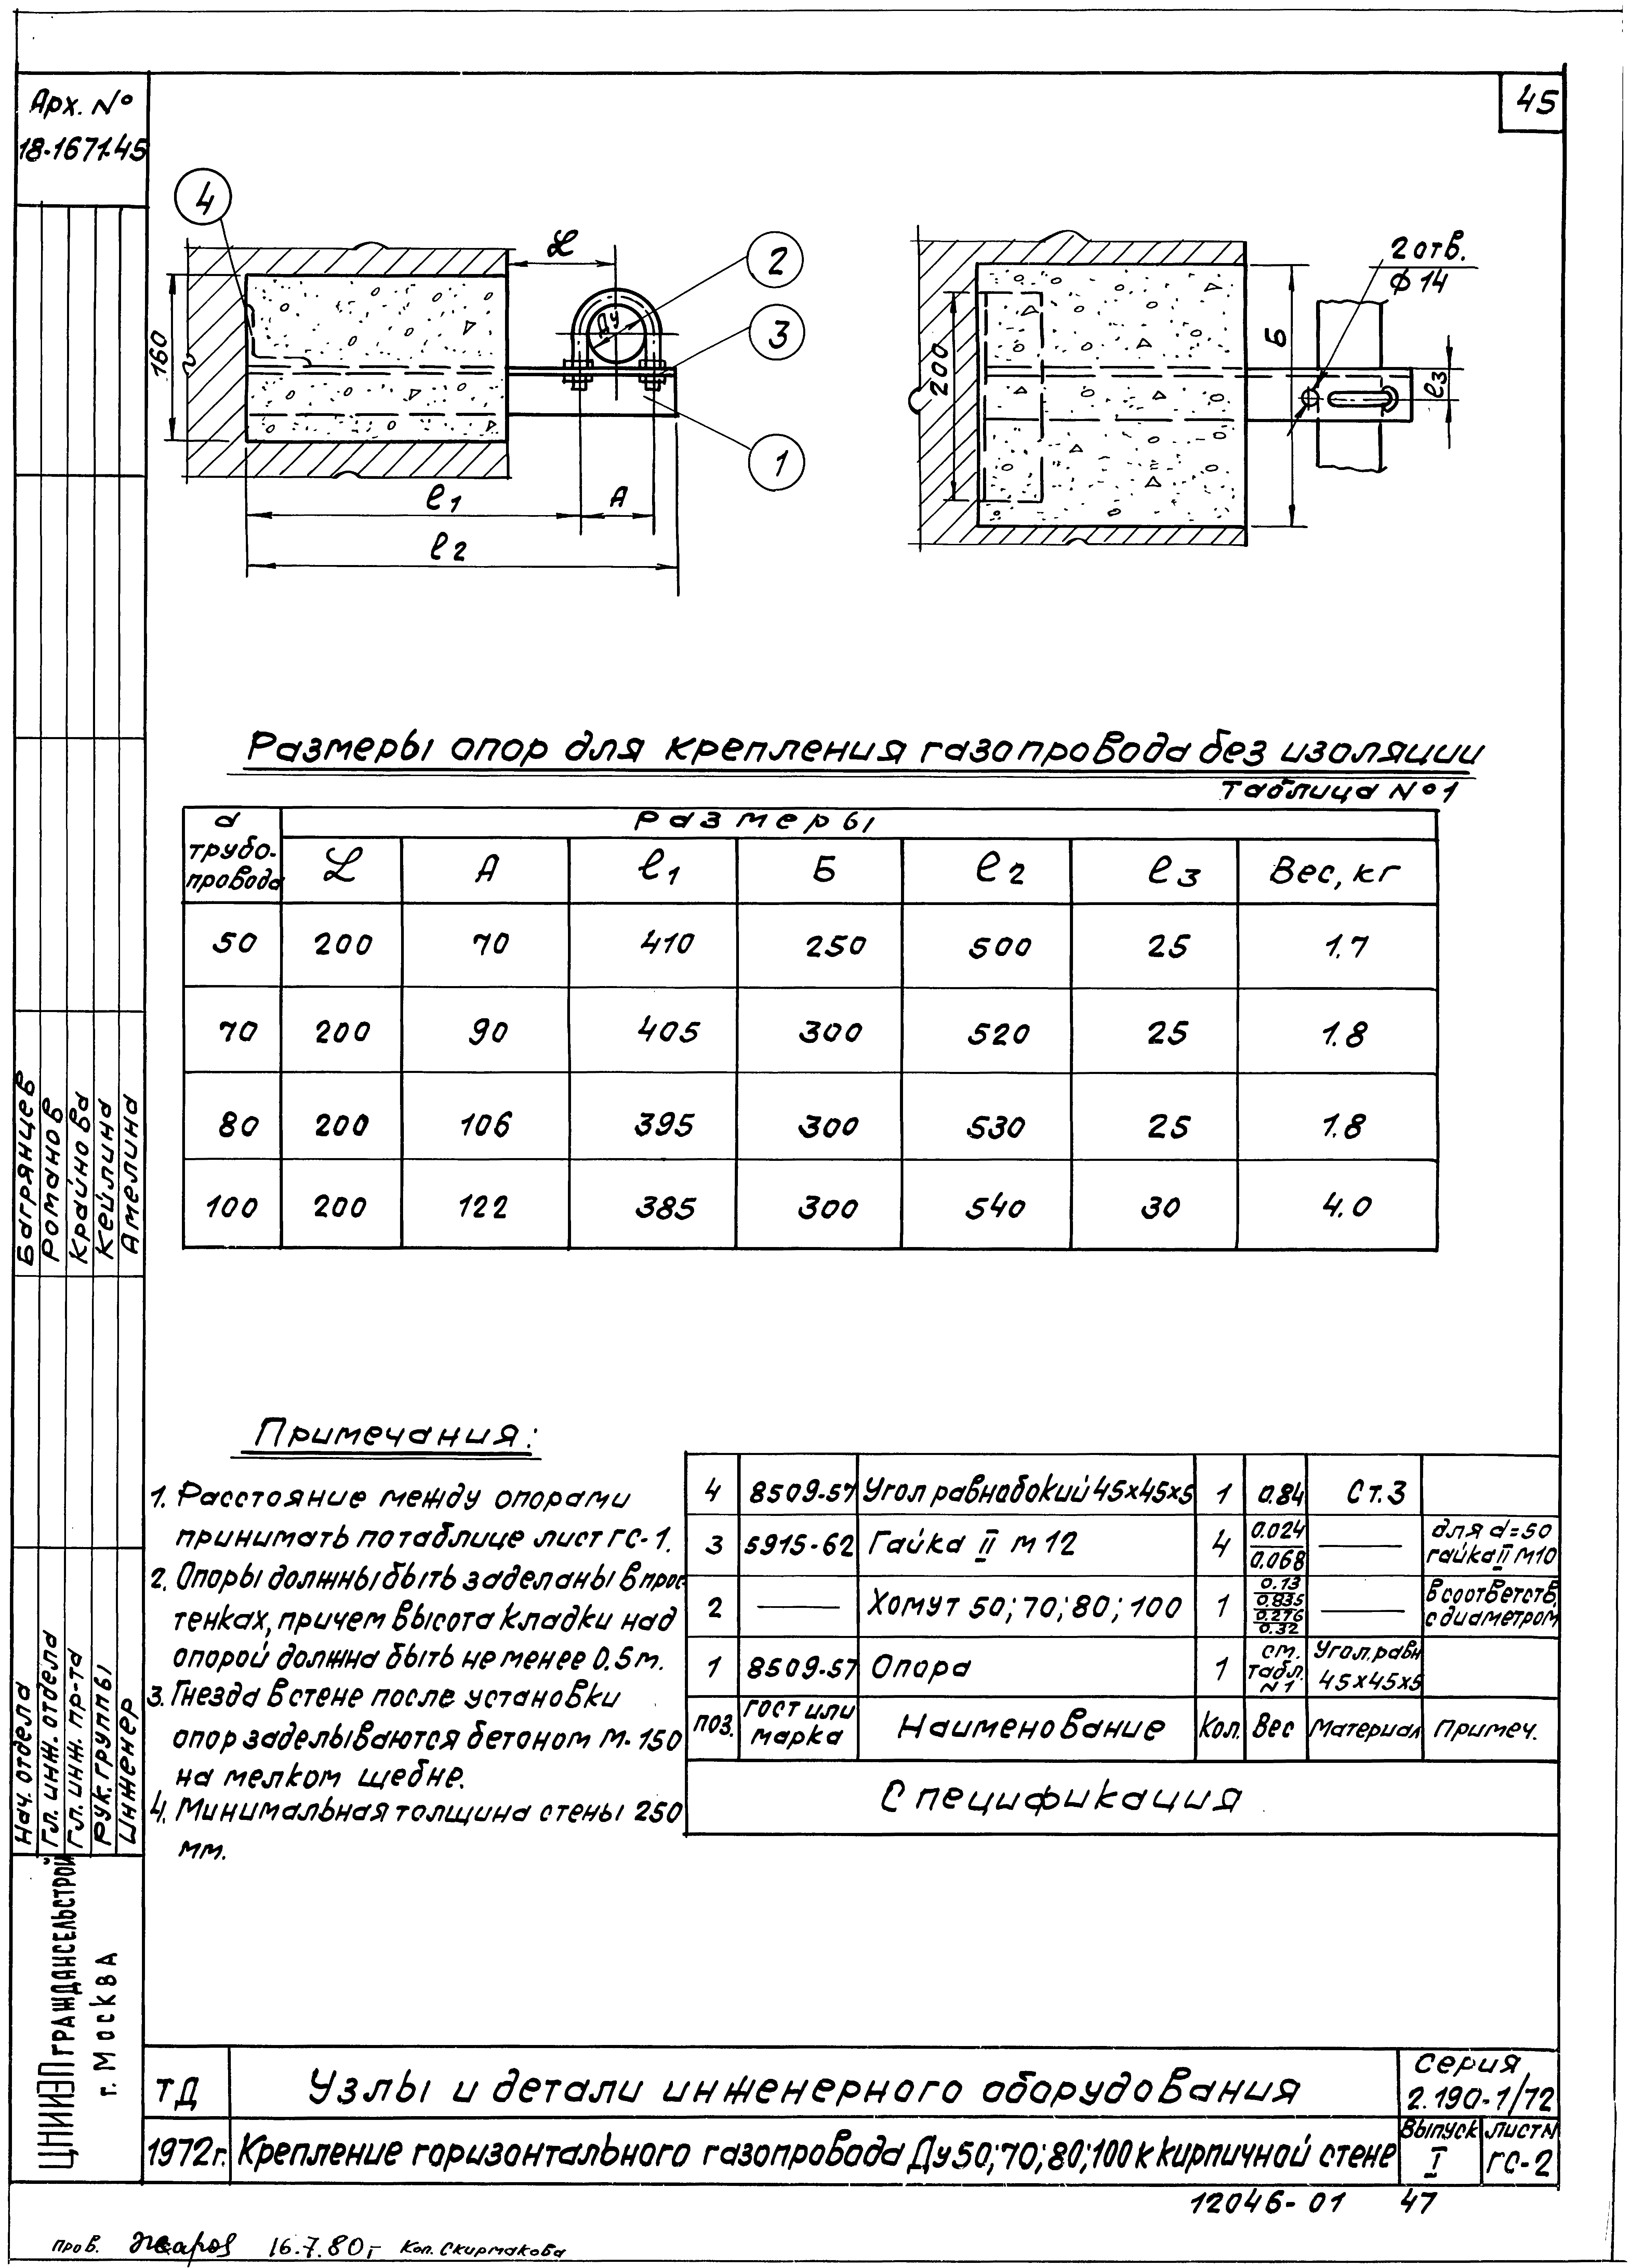 Арх. №
18-1671.45
45
4
ℒ
2
Ду
3
160
1
ℓ1
А
ℓ2
2 отв.
ф 14
200
Б
ℓ3
Размеры опор для крепления газопровода без изоляции
Таблица №1
d трубо-провода | Размеры
ℒ | А | ℓ1 | Б | ℓ2 | ℓ3 | Вес, кг
50 | 200 | 70 | 410 | 250 | 500 | 25 | 1.7
70 | 200 | 90 | 405 | 300 | 520 | 25 | 1.8
80 | 200 | 106 | 395 | 300 | 530 | 25 | 1.8
100 | 200 | 122 | 385 | 300 | 540 | 30 | 4.0
Примечания:
1. Расстояние между опорами
принимать по таблице лист ГС-1.
2. Опоры должны быть заделаны в прос-
тенках, причем высота кладки над
опорой должна быть не менее 0.5 м.
3. Гнезда в стене после установки
опор заделываются бетоном М-150
на мелком щебне.
4. Минимальная толщина стены 250
мм.
4 | 8509-57 | Угол равнобокий 45х45х5 | 1 | 0.84 | Ст.3
3 | 5915-62 | Гайка II М 12 | 4 | 0.024 0.068 | — | для d=50 гайка II М10
2 | — | Хомут 50; 70; 80; 100 | 1 | 0.13 0.835 0.276 0.32 | — | В соответств. с диаметром
1 | 8509-57 | Опора | 1 | см. табл. N 1 | Угол.равн 45х45х5
поз. | ГОСТ или марка | Наименование | Кол. | Вес | Материал | Примеч.
Спецификация
Нач. отдела Багрянцев
Гл. инж. отдела Романов
Гл. инж. пр-та Крайнова
Рук. группы Кейлина
Инженер Амелина
ЦНИИЭПГРАЖДАНСЕЛЬСТРОЙ
г. МОСКВА
ТД
Узлы и детали инженерного оборудования
Серия
2.190-1/72
1972г.
Крепление горизонтального газопровода Ду50;70;80;100 к кирпичной стене
Выпуск
I
Лист N
ГС-2
12046-01 47
пров. Жаров 16.7.80г Коп. Скирмакова